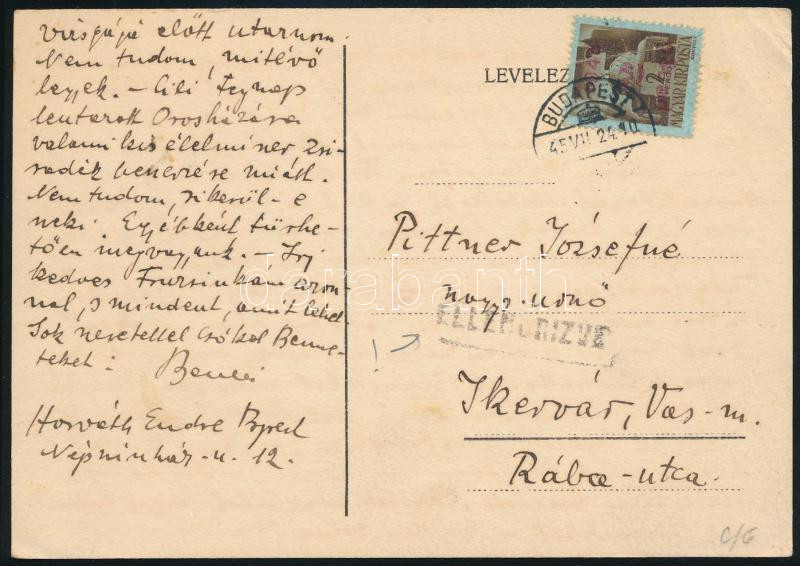 vizsgája előtt utaznom.
Nem tudom, mitévő
legyek. - Cili tegnap
leutazott Orosházára
valami kis élelmiszer zsi-
radék beszerzése miatt.
Nem tudom, sikerül-e
neki. Egyébként tűrhe-
tően megvagyunk. - Írj
kedves azon-
nal, s mindent, amit lehet.
Sok szeretettel csókol Benne-
teket:
Horváth Endre Bpest
Népszinház-u. 12.
LEVELEZ
2
MAGYAR KIR. POSTA
BUDAPEST
45 VII 24
Pittner Józsefné
nagys. nő
ELLENŐRIZVE
!
Ikervár, Vas-m.
Rába-utca.
darabanth
C/G